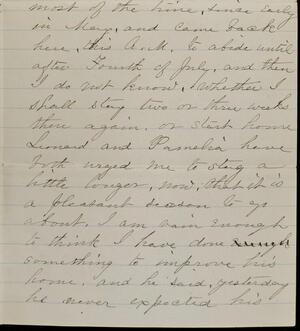 most of the time, since early
in May, and came back
here, this A.M. to abide until
after Fourth of July, and then
I do not know, whether I
shall stay two or three weeks
there again, or start home
Leonard and Pamelia have
both urged me to stay a
little longer, now, that it is
a pleasant season to go
about. I am vain enough
to think I have done
something to improve his
home, and he said, yesterday
he never expected his